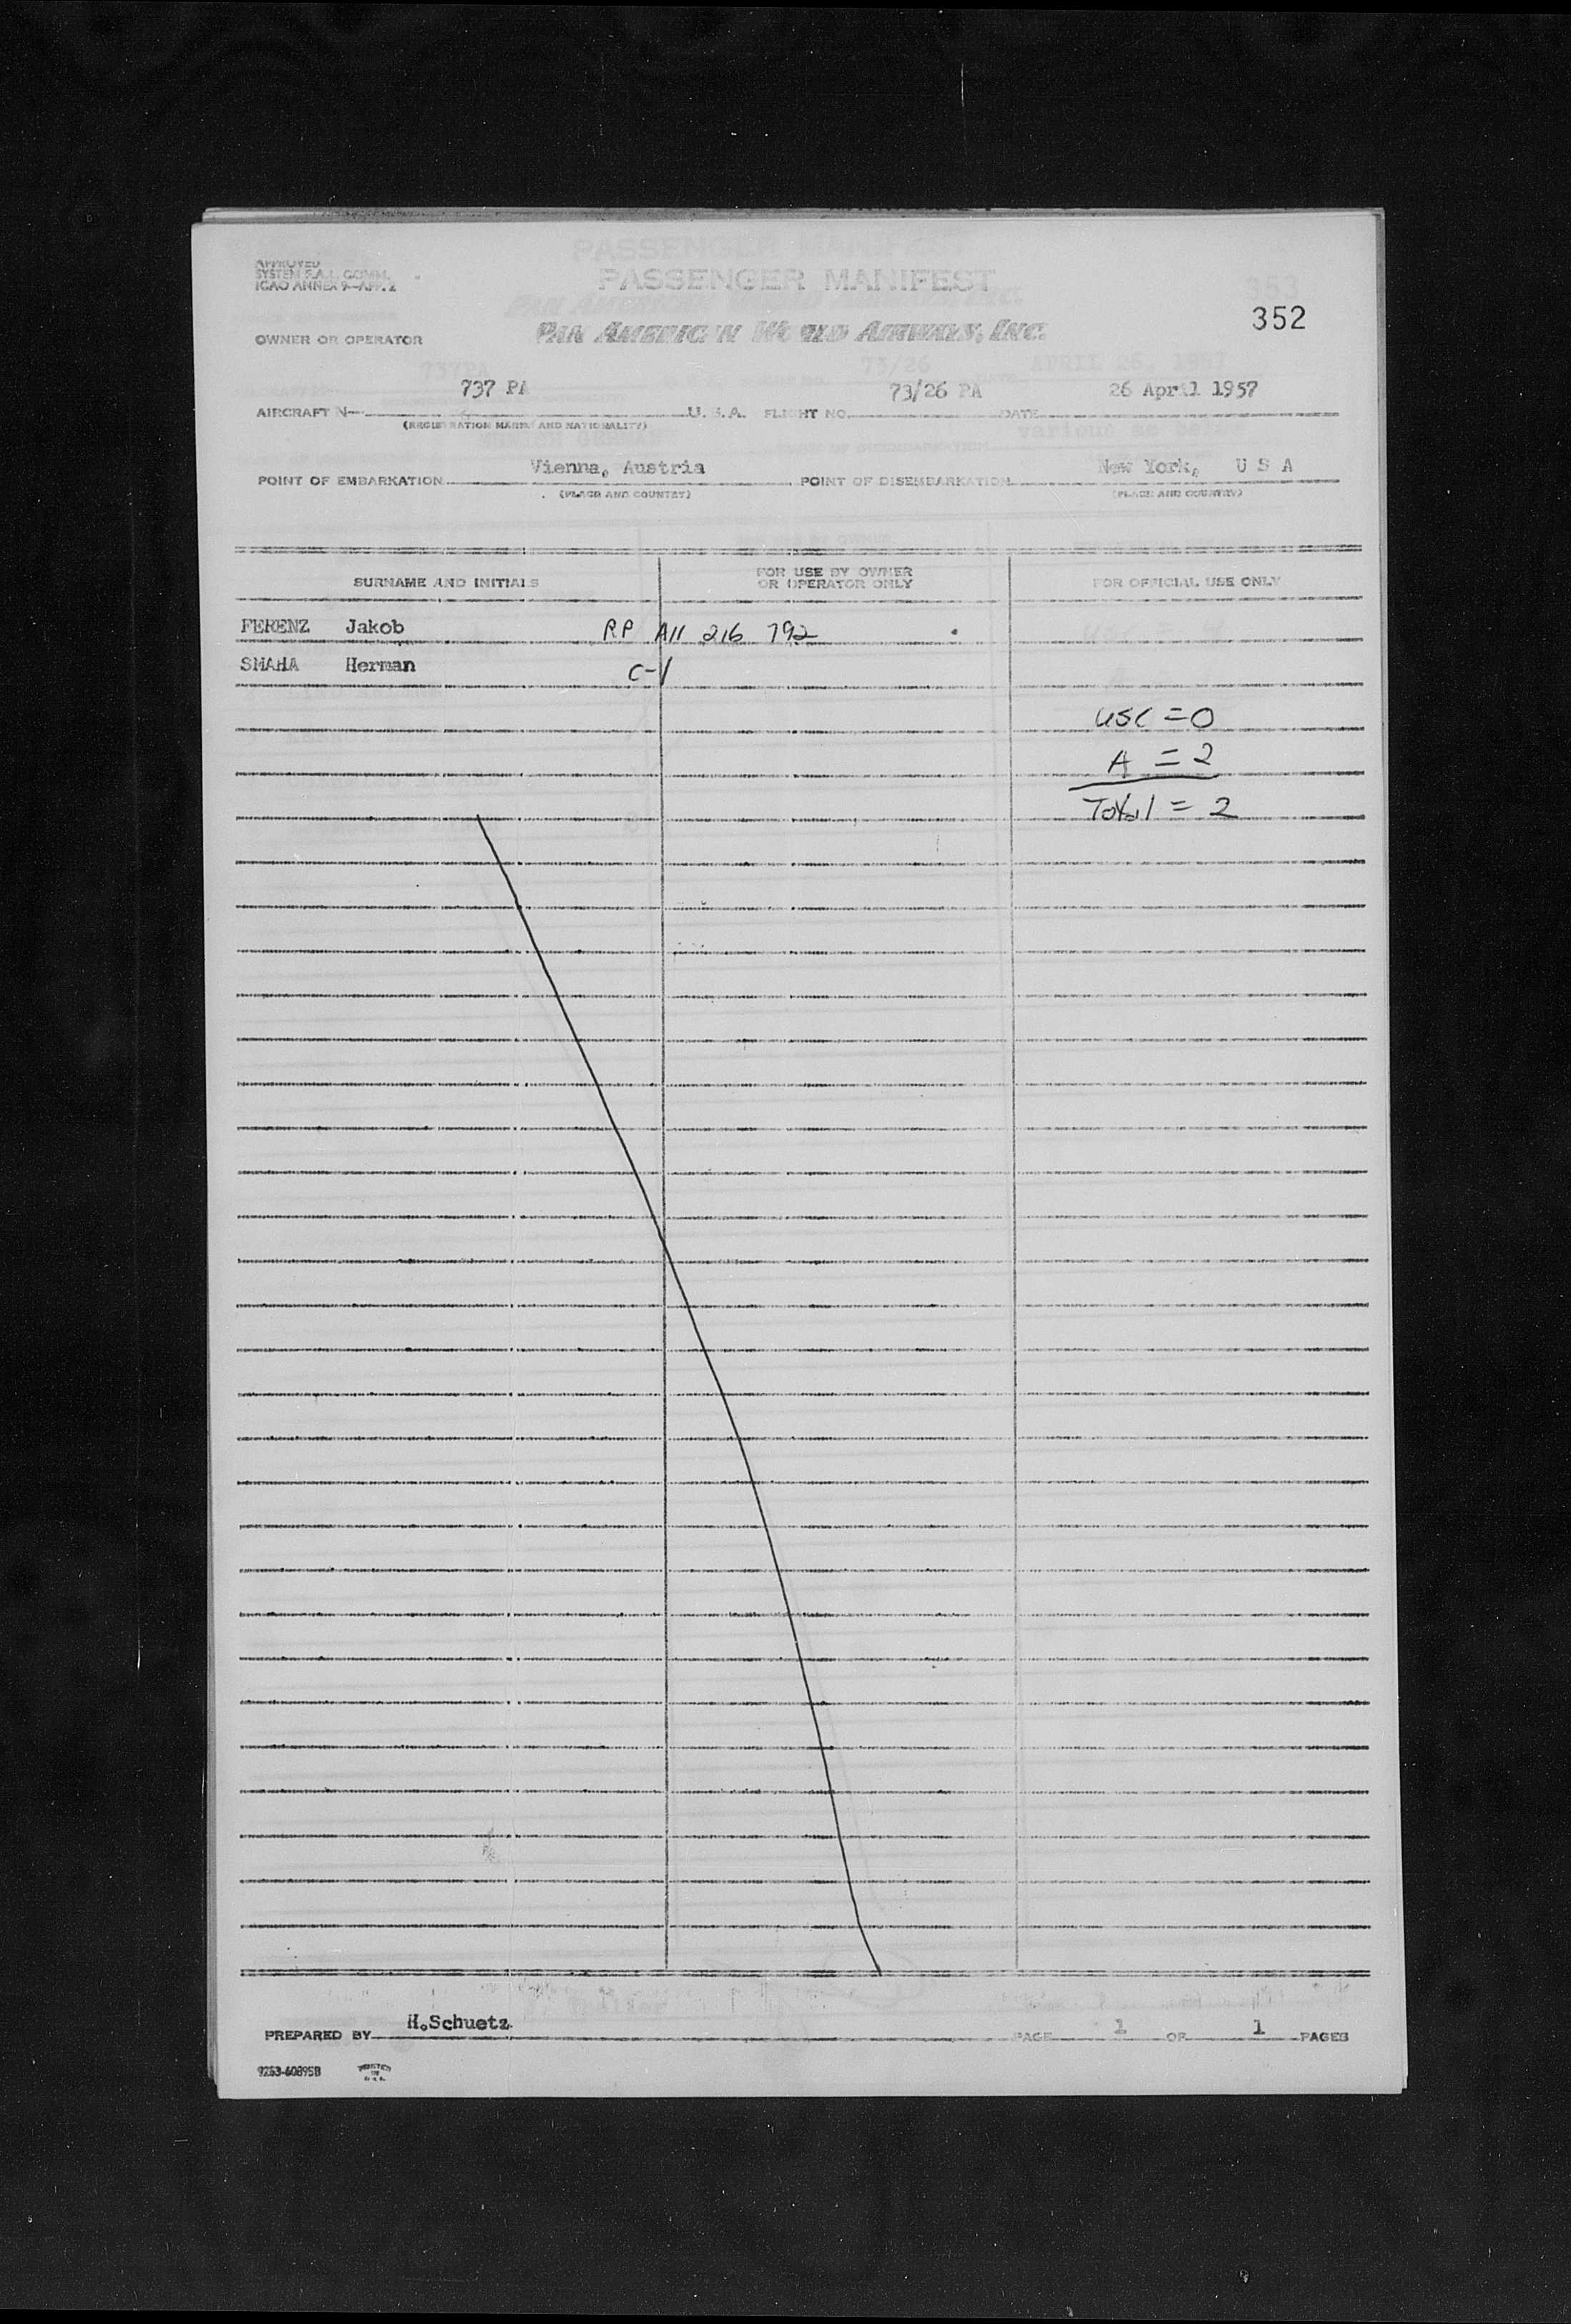 APPROVED
SYSTEM F.A.L. COMM.
ICAO ANNEX 9—APP. 2
PASSENGER MANIFEST
352
OWNER OR OPERATOR PAN AMERICAN WORLD AIRWAYS, INC.
737 PA 73/26 PA 26 April 1957
AIRCRAFT N— U.S.A. FLIGHT NO. DATE
(REGISTRATION MARKS AND NATIONALITY)
Vienna, Austria New York, U S A
POINT OF EMBARKATION POINT OF DISEMBARKATION
(PLACE AND COUNTRY) (PLACE AND COUNTRY)
SURNAME AND INITIALS FOR USE BY OWNER OR OPERATOR ONLY FOR OFFICIAL USE ONLY
FERENZ Jakob RP A11 216 792
SMAHA Herman C-1
USC = 0
A = 2
Total = 2
H.Schuetz
PREPARED BY PAGE 1 OF 1 PAGES
9263-60895B PRINTED IN U.S.A.